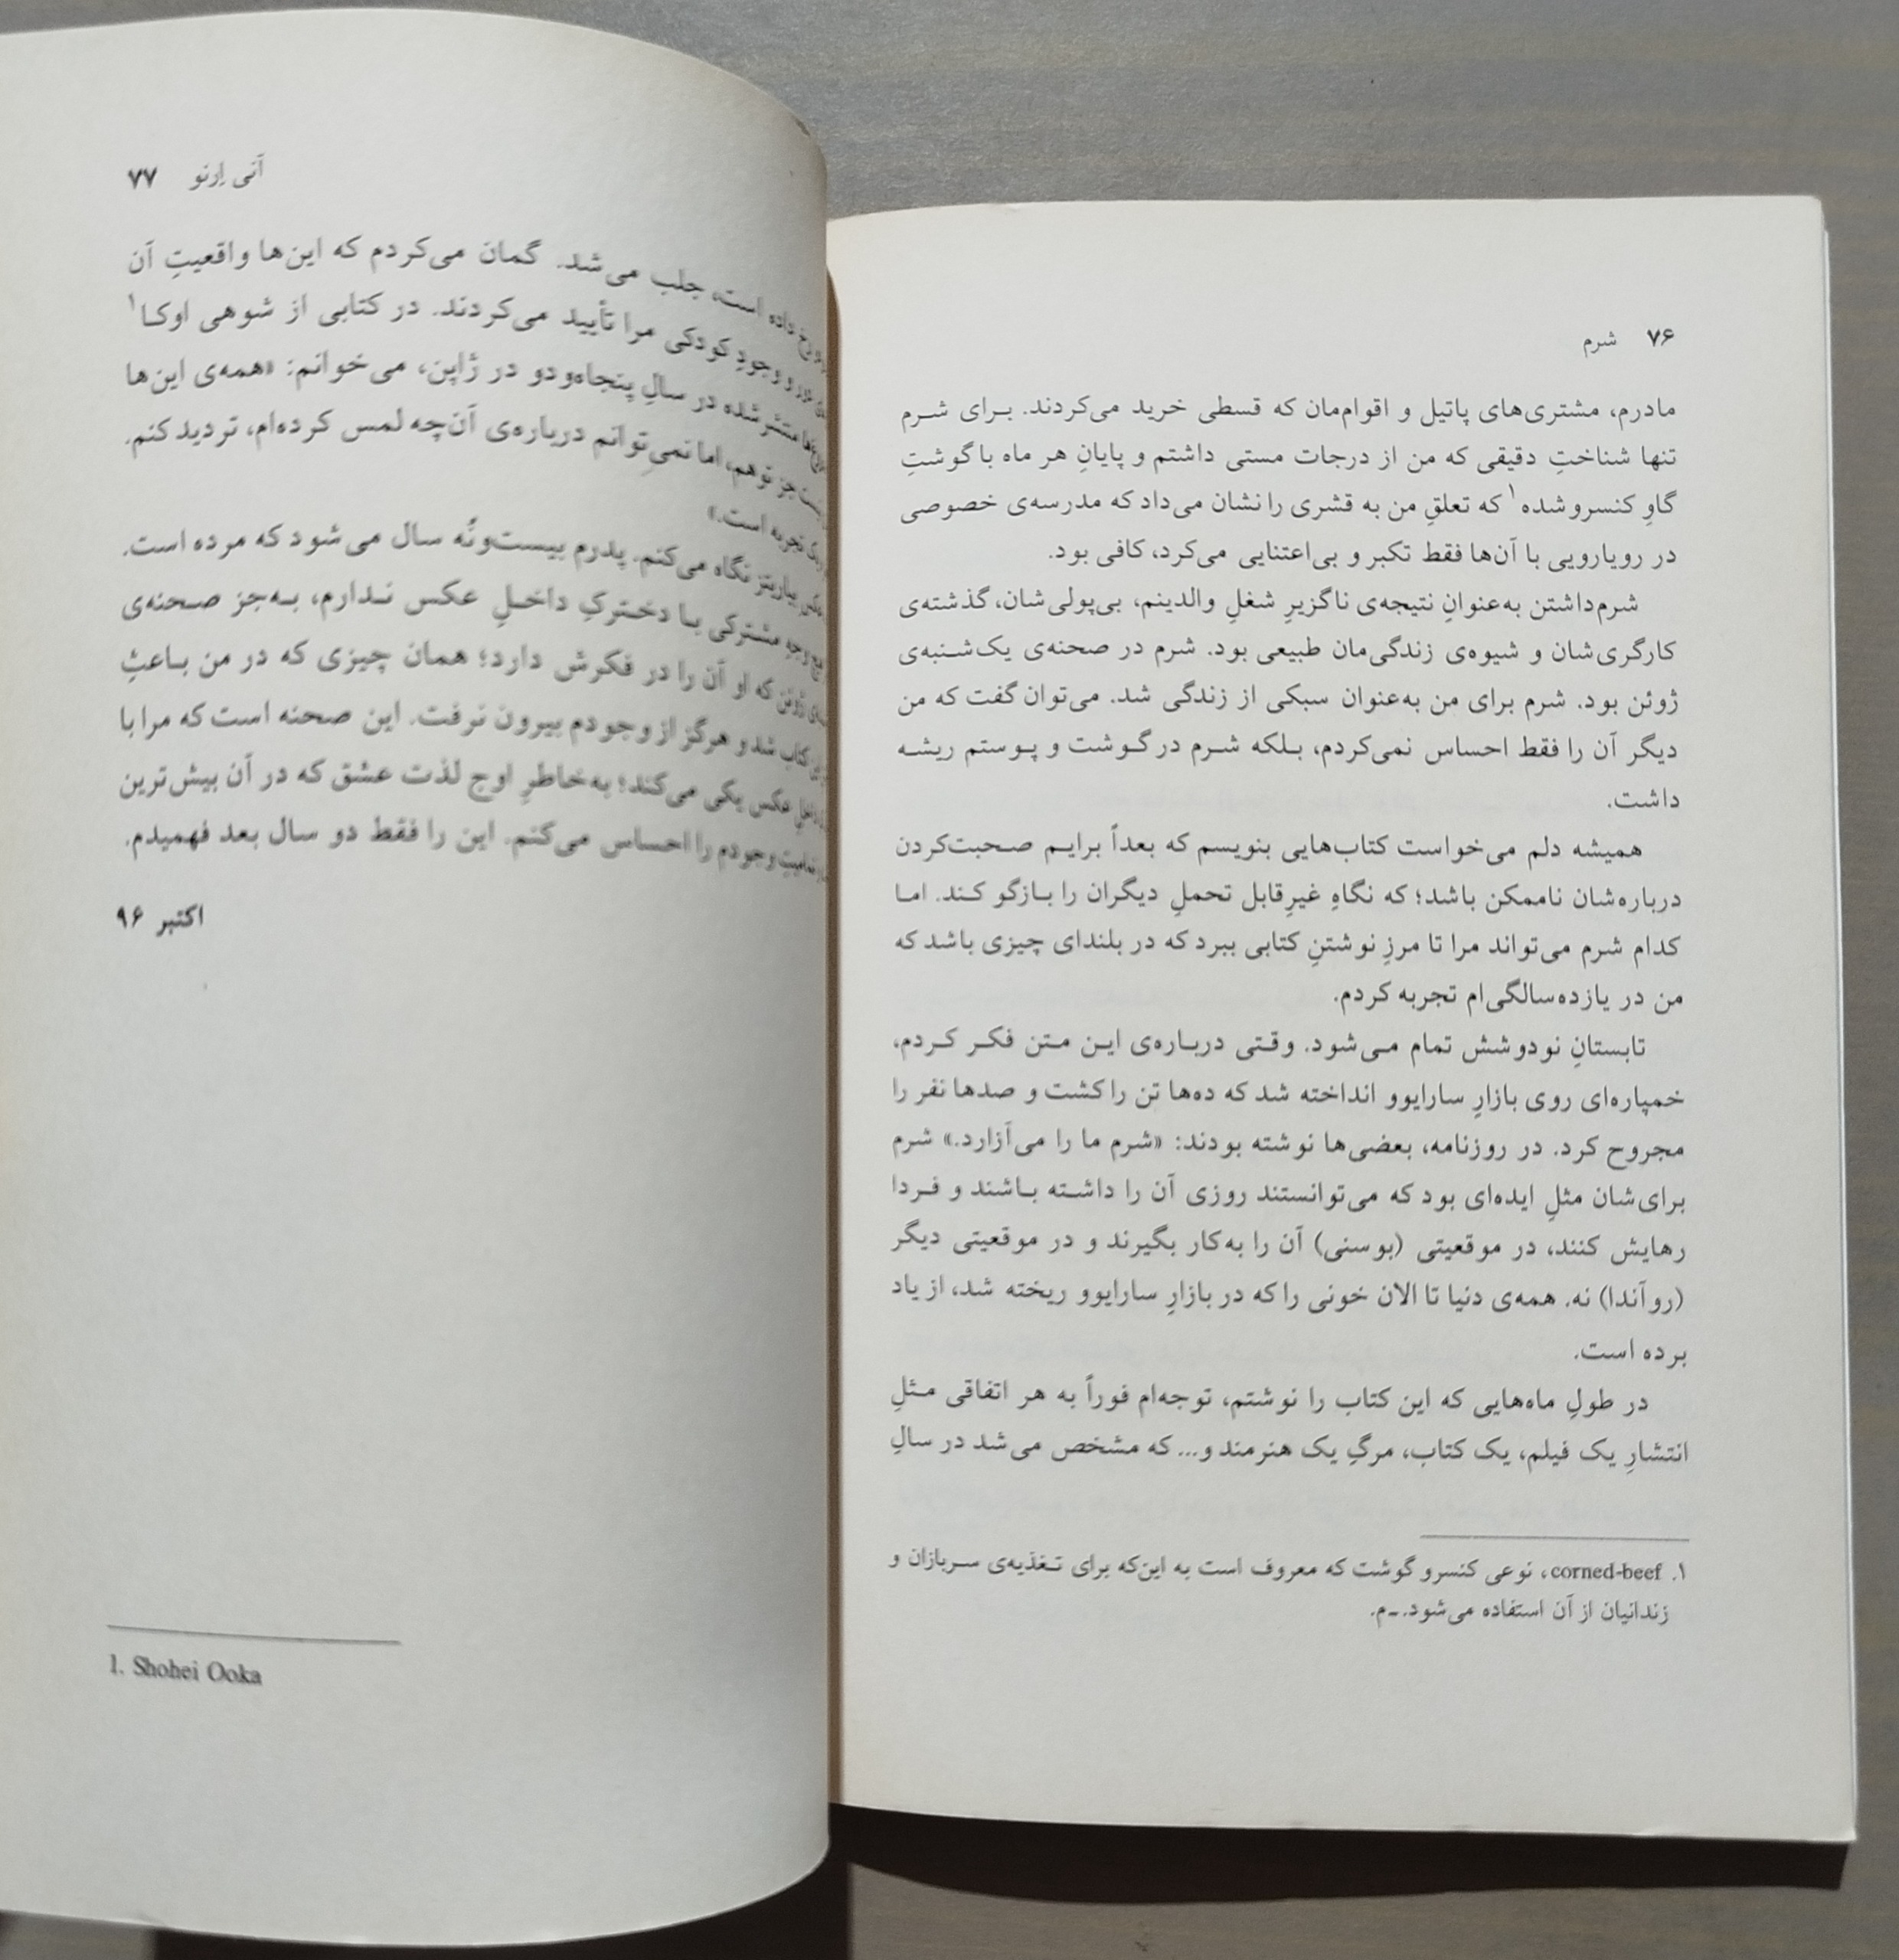 ۷۶ شرم
مادرم، مشتری‌های پاتیل و اقوام‌مان که قسطی خرید می‌کردند. برای شرم
تنها شناختِ دقیقی که من از درجات مستی داشتم و پایانِ هر ماه با گوشتِ
گاوِ کنسروشده۱ که تعلقِ من به قشری را نشان می‌داد که مدرسه‌ی خصوصی
در رویارویی با آن‌ها فقط تکبر و بی‌اعتنایی می‌کرد، کافی بود.
شرم‌داشتن به‌عنوانِ نتیجه‌ی ناگزیرِ شغلِ والدینم، بی‌پولی‌شان، گذشته‌ی
کارگری‌شان و شیوه‌ی زندگی‌مان طبیعی بود. شرم در صحنه‌ی یک‌شنبه‌ی
ژوئن بود. شرم برای من به‌عنوان سبکی از زندگی شد. می‌توان گفت که من
دیگر آن را فقط احساس نمی‌کردم، بلکه شرم در گوشت و پوستم ریشه
داشت.
همیشه دلم می‌خواست کتاب‌هایی بنویسم که بعداً برایم صحبت‌کردن
درباره‌شان ناممکن باشد؛ که نگاهِ غیرِقابل تحملِ دیگران را بازگو کند. اما
کدام شرم می‌تواند مرا تا مرزِ نوشتنِ کتابی ببرد که در بلندای چیزی باشد که
من در یازده‌سالگی‌ام تجربه کردم.
تابستانِ نودوشش تمام می‌شود. وقتی درباره‌ی این متن فکر کردم،
خمپاره‌ای روی بازارِ سارایوو انداخته شد که ده‌ها تن را کشت و صدها نفر را
مجروح کرد. در روزنامه، بعضی‌ها نوشته بودند: «شرم ما را می‌آزارد.» شرم
برای‌شان مثلِ ایده‌ای بود که می‌توانستند روزی آن را داشته باشند و فردا
رهایش کنند، در موقعیتی (بوسنی) آن را به‌کار بگیرند و در موقعیتی دیگر
(روآندا) نه. همه‌ی دنیا تا الان خونی را که در بازارِ سارایوو ریخته شد، از یاد
برده است.
در طولِ ماه‌هایی که این کتاب را نوشتم، توجه‌ام فوراً به هر اتفاقی مثلِ
انتشارِ یک فیلم، یک کتاب، مرگِ یک هنرمند و... که مشخص می‌شد در سالِ
۱. corned-beef، نوعی کنسرو گوشت که معروف است به این‌که برای تغذیه‌ی سربازان و
زندانیان از آن استفاده می‌شود.ـ‌م.
آنی اِرنو ۷۷
رخ داده است، جلب می‌شد. گمان می‌کردم که این‌ها واقعیتِ آن
و وجودِ کودکی مرا تأیید می‌کردند. در کتابی از شوهی اوکا۱
منتشرشده در سالِ پنجاه‌ودو در ژاپن، می‌خوانم: «همه‌ی این‌ها
جز توهم، اما نمی‌توانم درباره‌ی آن‌چه لمس کرده‌ام، تردید کنم.
یک تجربه است.»
بیاریتز نگاه می‌کنم. پدرم بیست‌ونُه سال می‌شود که مرده است.
وجهِ مشترکی با دخترکِ داخلِ عکس ندارم، به‌جز صحنه‌ی
ژوئن که او آن را در فکرش دارد؛ همان چیزی که در من باعثِ
کتاب شد و هرگز از وجودم بیرون نرفت. این صحنه است که مرا با
داخلِ عکس یکی می‌کند؛ به‌خاطرِ اوج لذت عشق که در آن بیش‌ترین
وجودم را احساس می‌کنم. این را فقط دو سال بعد فهمیدم.
اکتبر ۹۶
1. Shohei Ooka